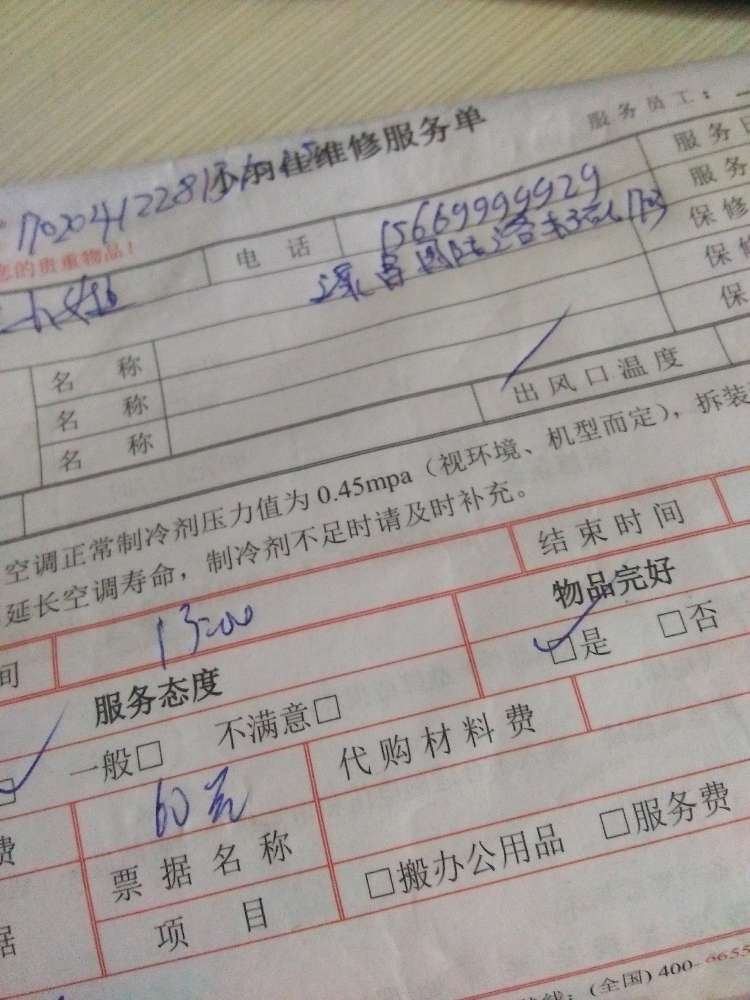 维修服务单
服务员工：
17020412281
您的贵重物品！
电 话
15669999929
服务
服务
保修
保修
保
名 称
名 称
名 称
出风口温度
空调正常制冷剂压力值为 0.45mpa（视环境、机型而定），拆装
延长空调寿命，制冷剂不足时请及时补充。
间
13:00
结束时间
服务态度
物品完好
一般□ 不满意□
□是 □否
费
60元
代购材料费
票据名称
□搬办公用品 □服务费
据
项 目
（全国) 400-6655